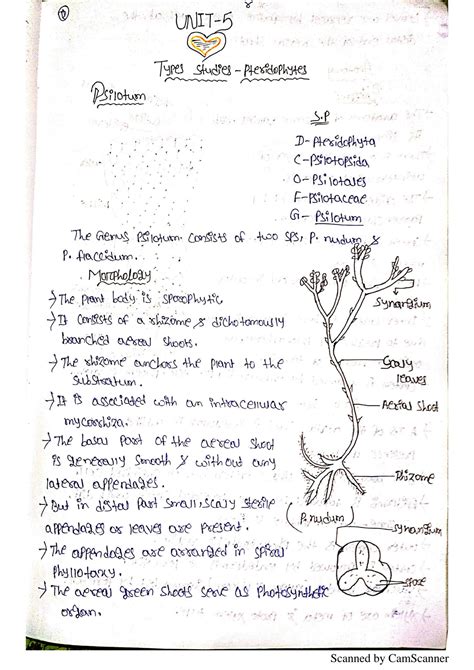 UNIT-5
Types Studies - Pteridophytes
Psilotum
S.P
D- Pteridophyta
C- Psilotopsida
O- Psilotales
F- Psilotaceae
G- Psilotum
The Genus Psilotum consists of two SPS, P. nudum &
P. flaccidum.
Morphology
→ The plant body is sporophytic
→ It consists of a rhizome & dichotomously
branched aereal shoots.
→ The rhizome anchors the plant to the
substratum.
→ It is associated with an intracellular
mycorrhiza.
→ The basal part of the aereal shoot
is generally smooth & without any
lateral appendages.
→ But in distal part small, scaly sterile
appendages or leaves are present.
→ The appendages are arranged in spiral
phyllotaxy.
→ The aereal green shoots serve as photosynthetic
organ.
Synangium
Scaly
leaves
Aerial shoot
Rhizome
(P. nudum)
synangium
Scanned by CamScanner